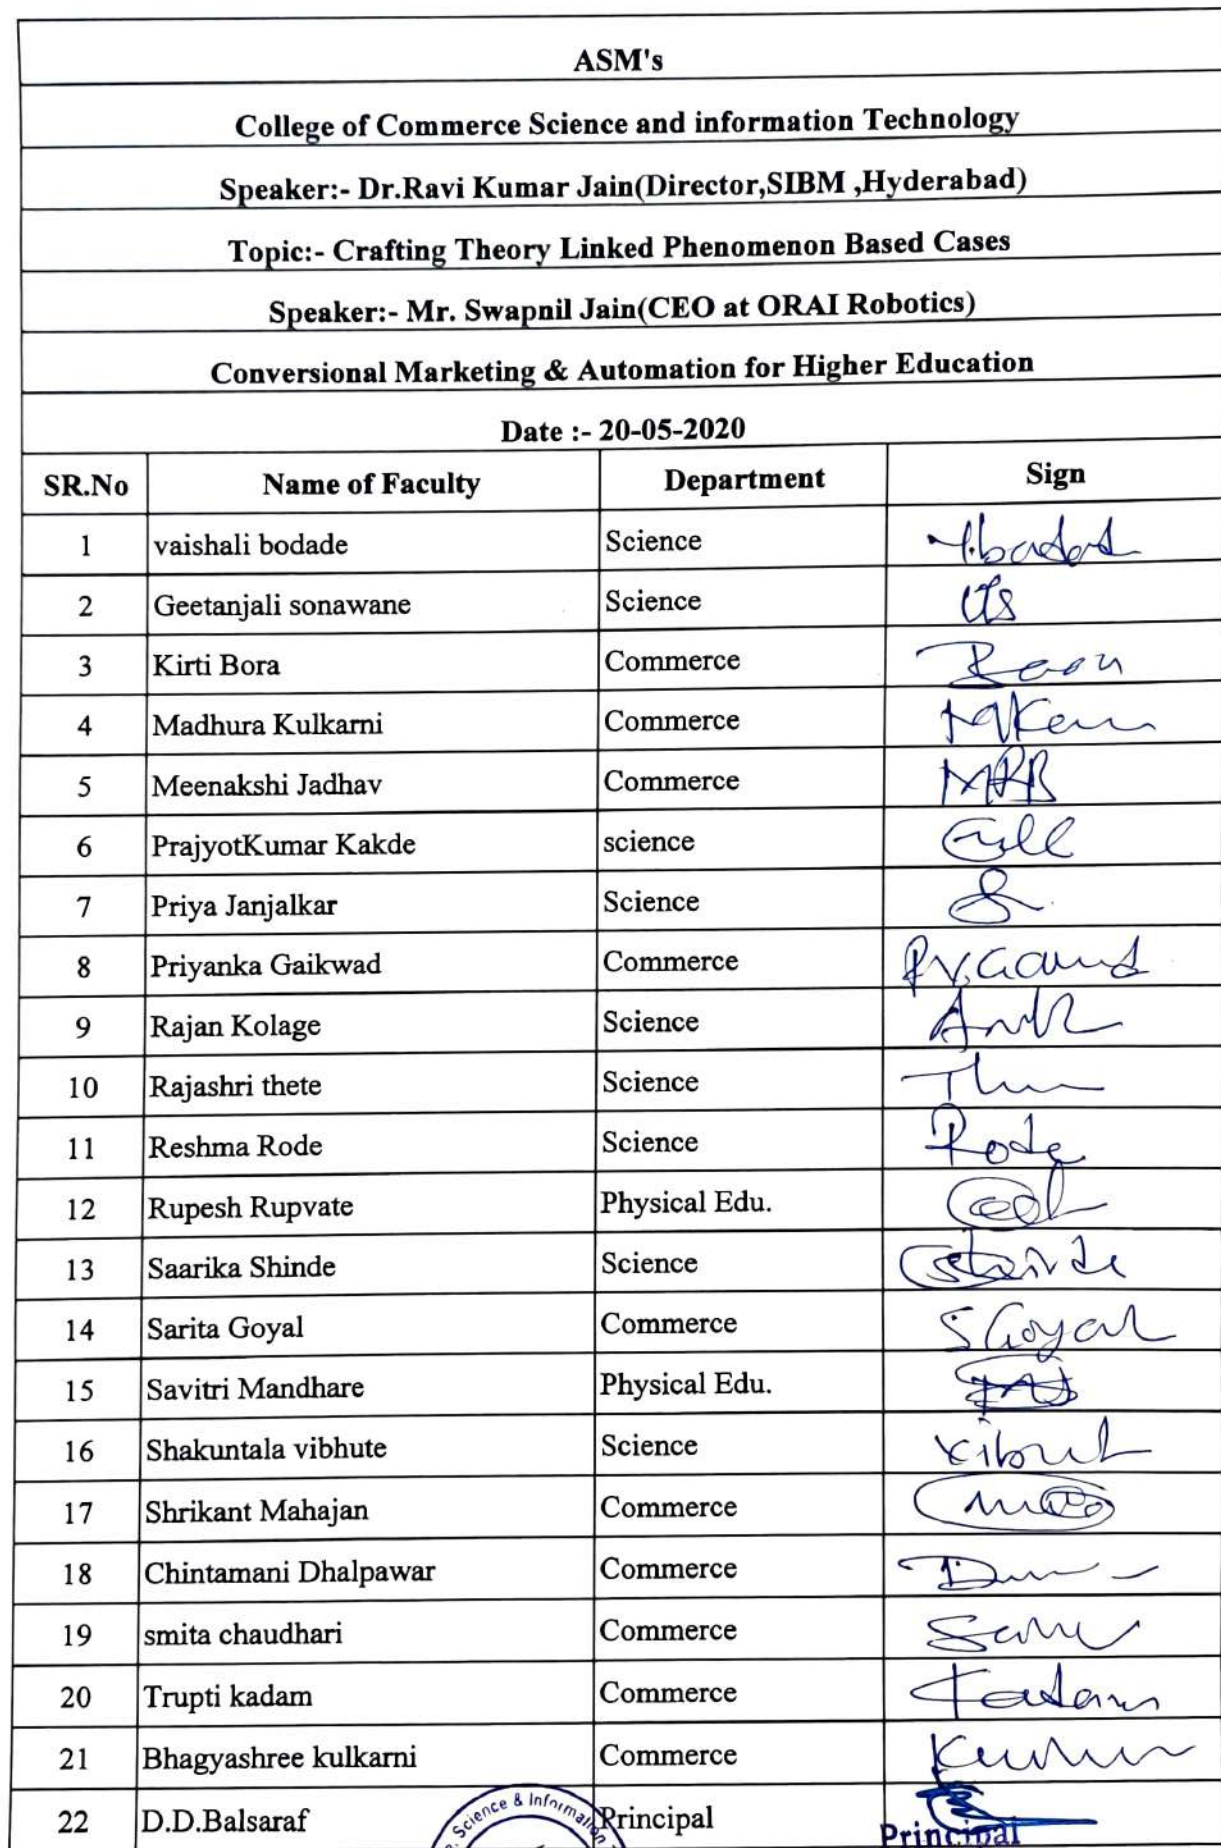 ASM's
College of Commerce Science and information Technology
Speaker:- Dr.Ravi Kumar Jain(Director,SIBM ,Hyderabad)
Topic:- Crafting Theory Linked Phenomenon Based Cases
Speaker:- Mr. Swapnil Jain(CEO at ORAI Robotics)
Conversional Marketing & Automation for Higher Education
Date :- 20-05-2020
SR.No Name of Faculty Department Sign
1 vaishali bodade Science
2 Geetanjali sonawane Science
3 Kirti Bora Commerce
4 Madhura Kulkarni Commerce
5 Meenakshi Jadhav Commerce
6 PrajyotKumar Kakde science
7 Priya Janjalkar Science
8 Priyanka Gaikwad Commerce
9 Rajan Kolage Science
10 Rajashri thete Science
11 Reshma Rode Science Rode
12 Rupesh Rupvate Physical Edu.
13 Saarika Shinde Science
14 Sarita Goyal Commerce S Goyal
15 Savitri Mandhare Physical Edu.
16 Shakuntala vibhute Science
17 Shrikant Mahajan Commerce
18 Chintamani Dhalpawar Commerce
19 smita chaudhari Commerce
20 Trupti kadam Commerce Kadam
21 Bhagyashree kulkarni Commerce
22 D.D.Balsaraf Principal
Science & Information
Principal